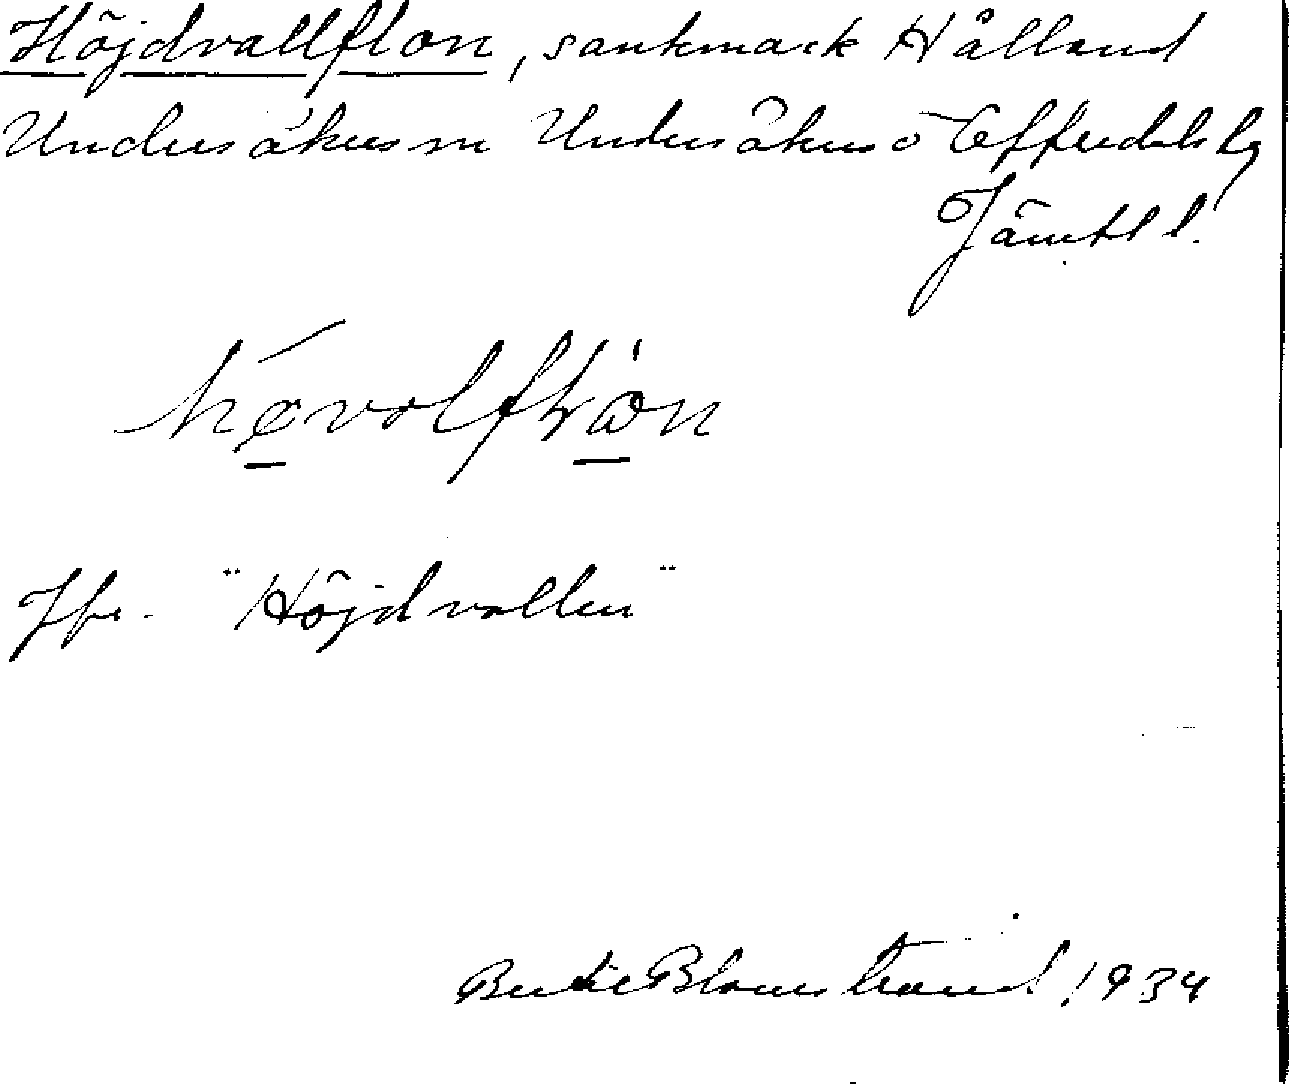 Höjdvallflon, sankmark Hålland
Undersåkers sn Undersåkers o Offerdals tg
Jämtl l.
Jfr. "Höjdvallen"
Bertil Blomstrand 1934